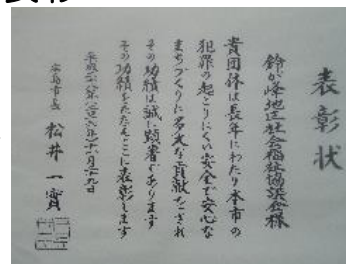 表彰状
鈴が峰地区社会福祉協議会様
貴団体は長年にわたり本市の
犯罪の起こりにくい安全で安心な
まちづくりに多大な貢献をされ
その功績は誠に顕著であります
その功績をたたえここに表彰します
広島市長 松井一實